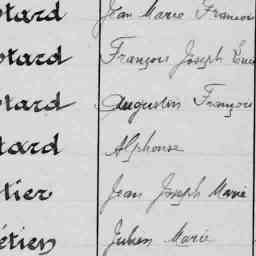 tard Jean Marie François
tard François Joseph
tard Augustin François
tard Alphonse
tier Jean Joseph Marie
étien Julien Marie